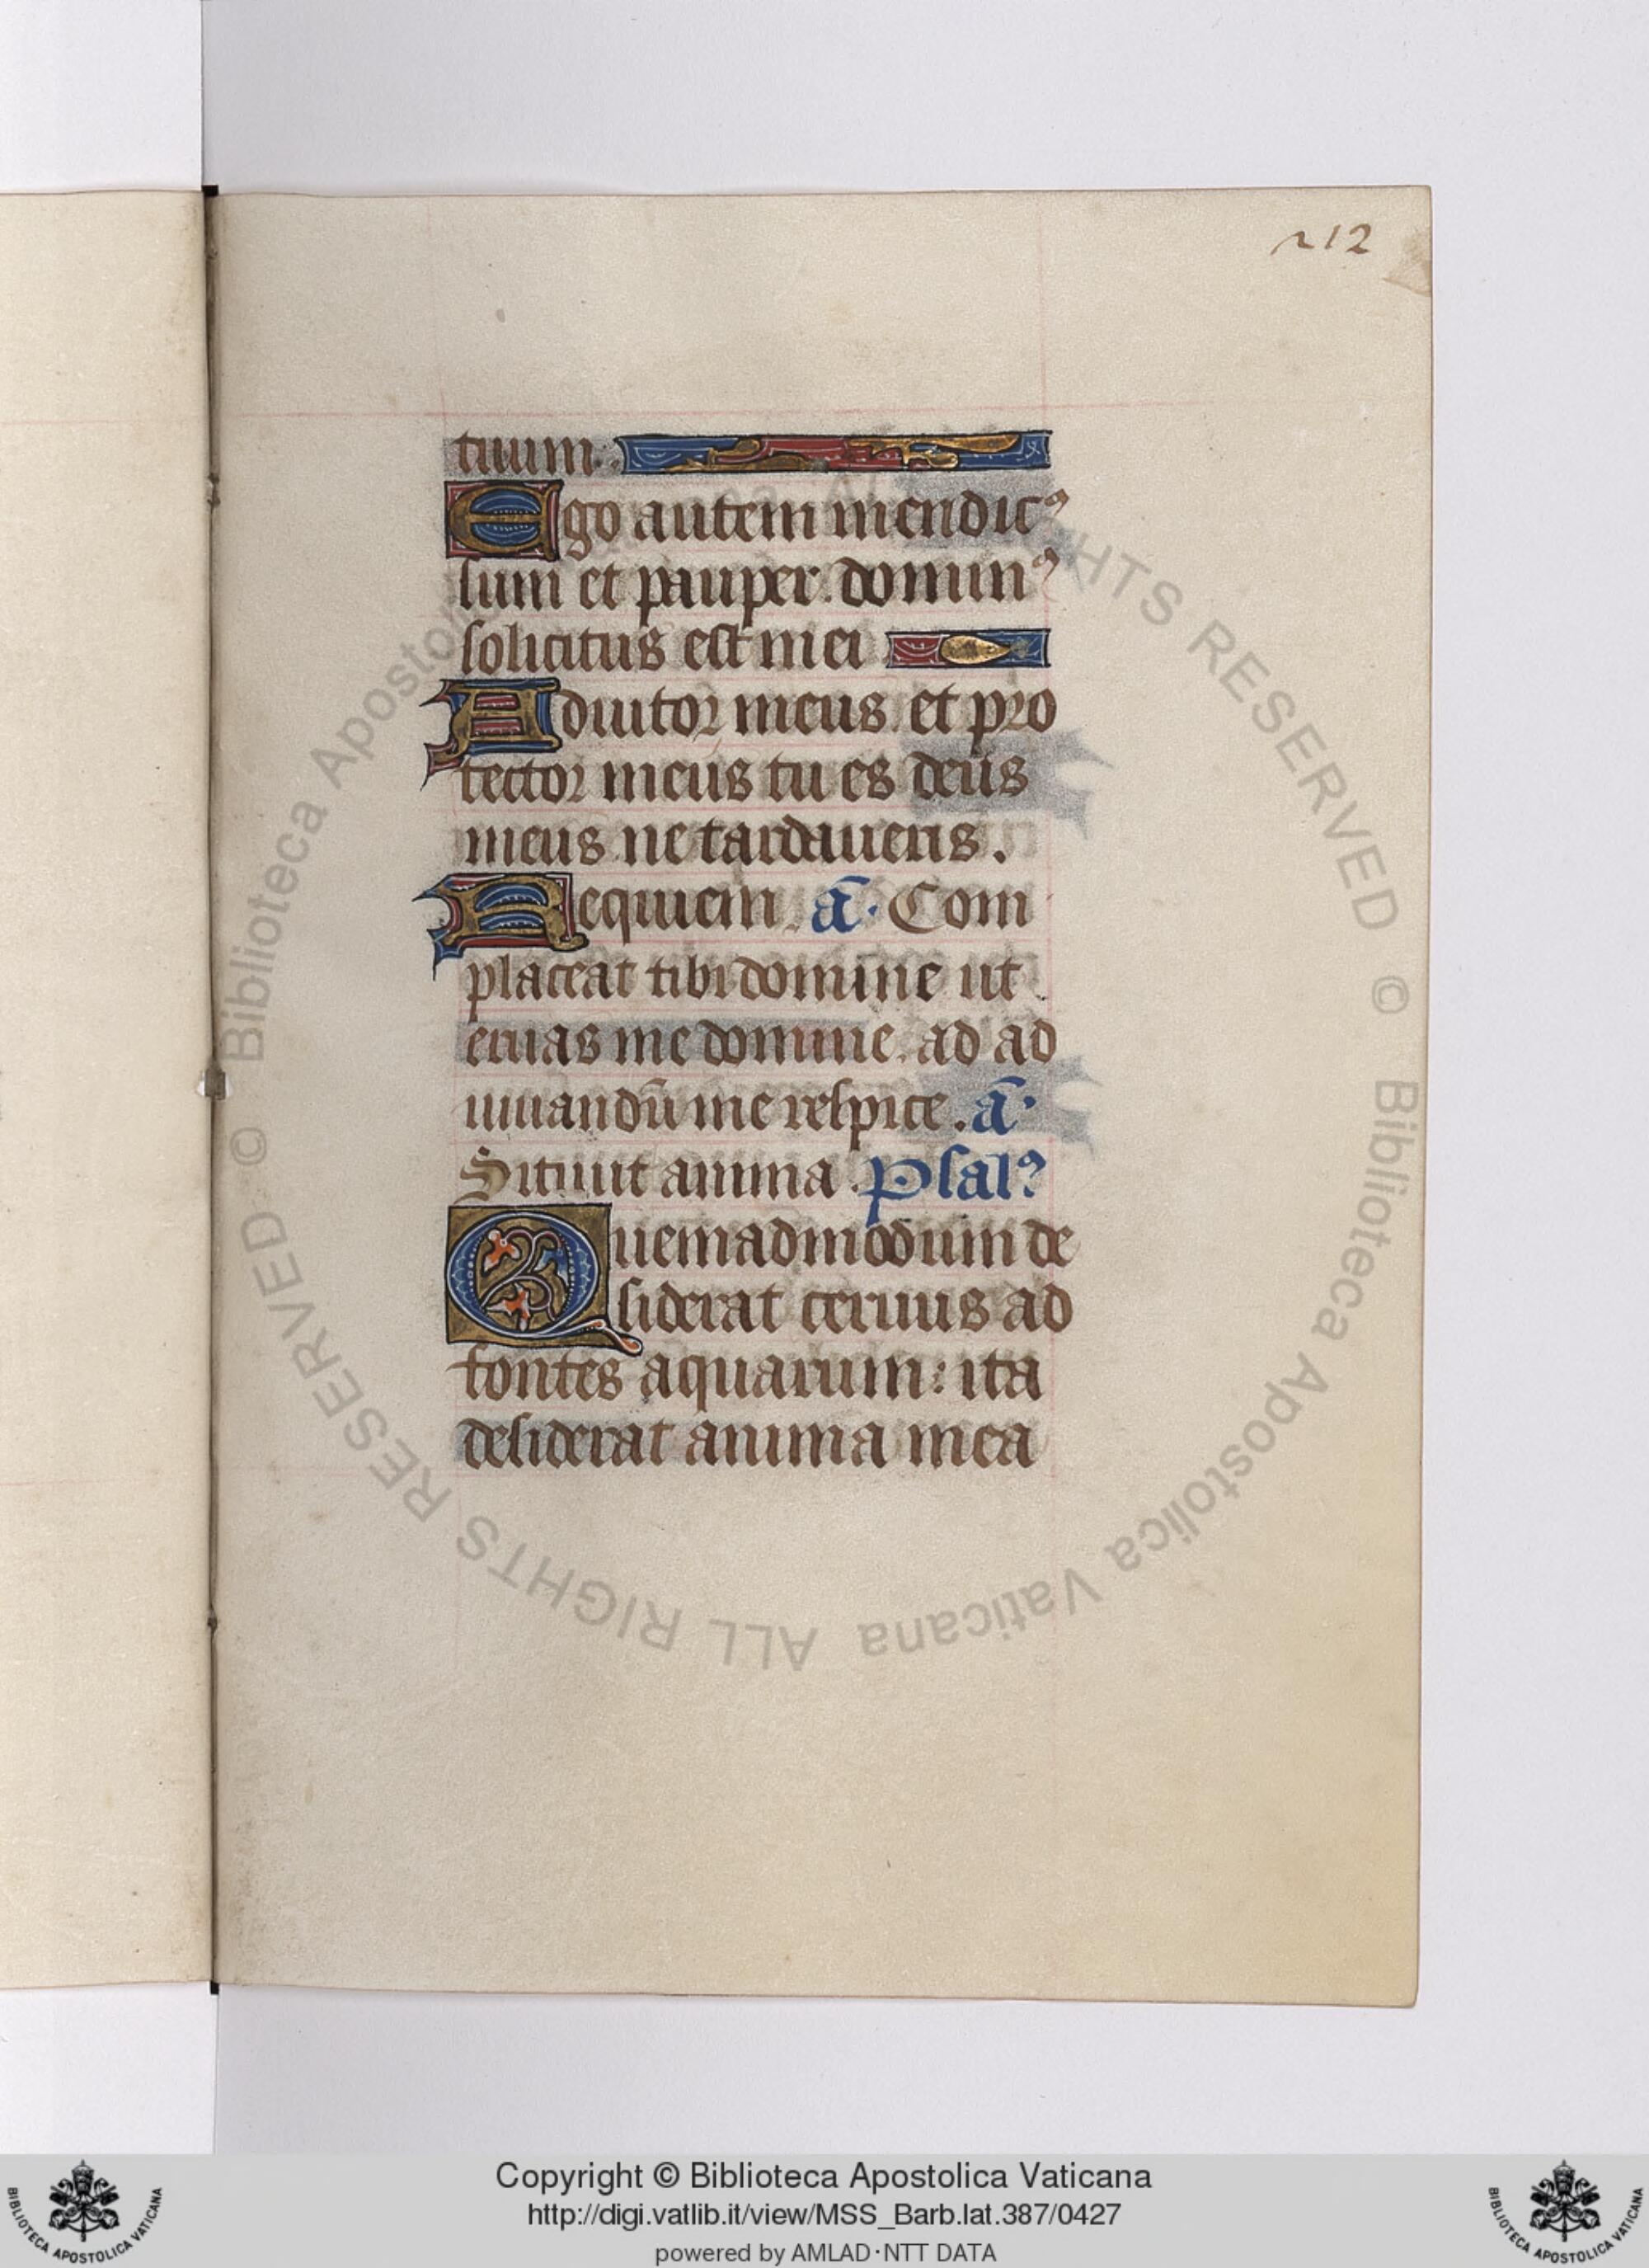 212
tuum.
Ego autem mendicꝰ
sum et pauper. dominꝰ
solicitus est mei
Adiutor meus. et pro
tector meus tu es deus
meus ne tardaueris.
Requiem. ā. Com
placeat tibi domine ut
eruas me domine. ad ad
iuuandū me respice. ā.
Sitiuit anima. Psalꝰ
Quemadmodum de
siderat ceruus ad
fontes aquarum: ita
desiderat anima mea
© Biblioteca Apostolica Vaticana ALL RIGHTS RESERVED © Biblioteca Apostolica Vaticana ALL RIGHTS RESERVED
Copyright © Biblioteca Apostolica Vaticana
http://digi.vatlib.it/view/MSS_Barb.lat.387/0427
powered by AMLAD·NTT DATA
BIBLIOTECA APOSTOLICA VATICANA
BIBLIOTECA APOSTOLICA VATICANA